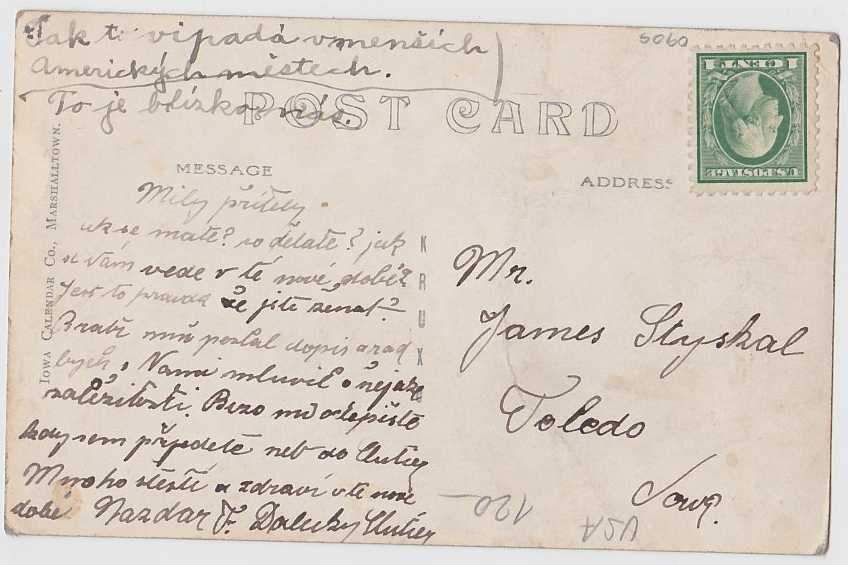 Tak to vipadá vmenších
Amerických městech.
To je blízko nás.
5060
POST CARD
1 CENT 1
U.S. POSTAGE
MESSAGE
ADDRESS
IOWA CALENDAR CO., MARSHALLTOWN.
KRUXO
Milý příteli
ak se mate? co děláte? jak
se Vám vede v té nové době?
Jest to pravda že jste ženat?
Bratr mů poslal dopis a rád
bych s Vami mluvil o nejaké
záležitosti. Brzo mě odepište
kdy sem přijedete neb do
Mnoho štěstí a zdraví v té nové
době. Nazdar F.
Mr.
James Styskal
Toledo
Iowa.
120-
USA